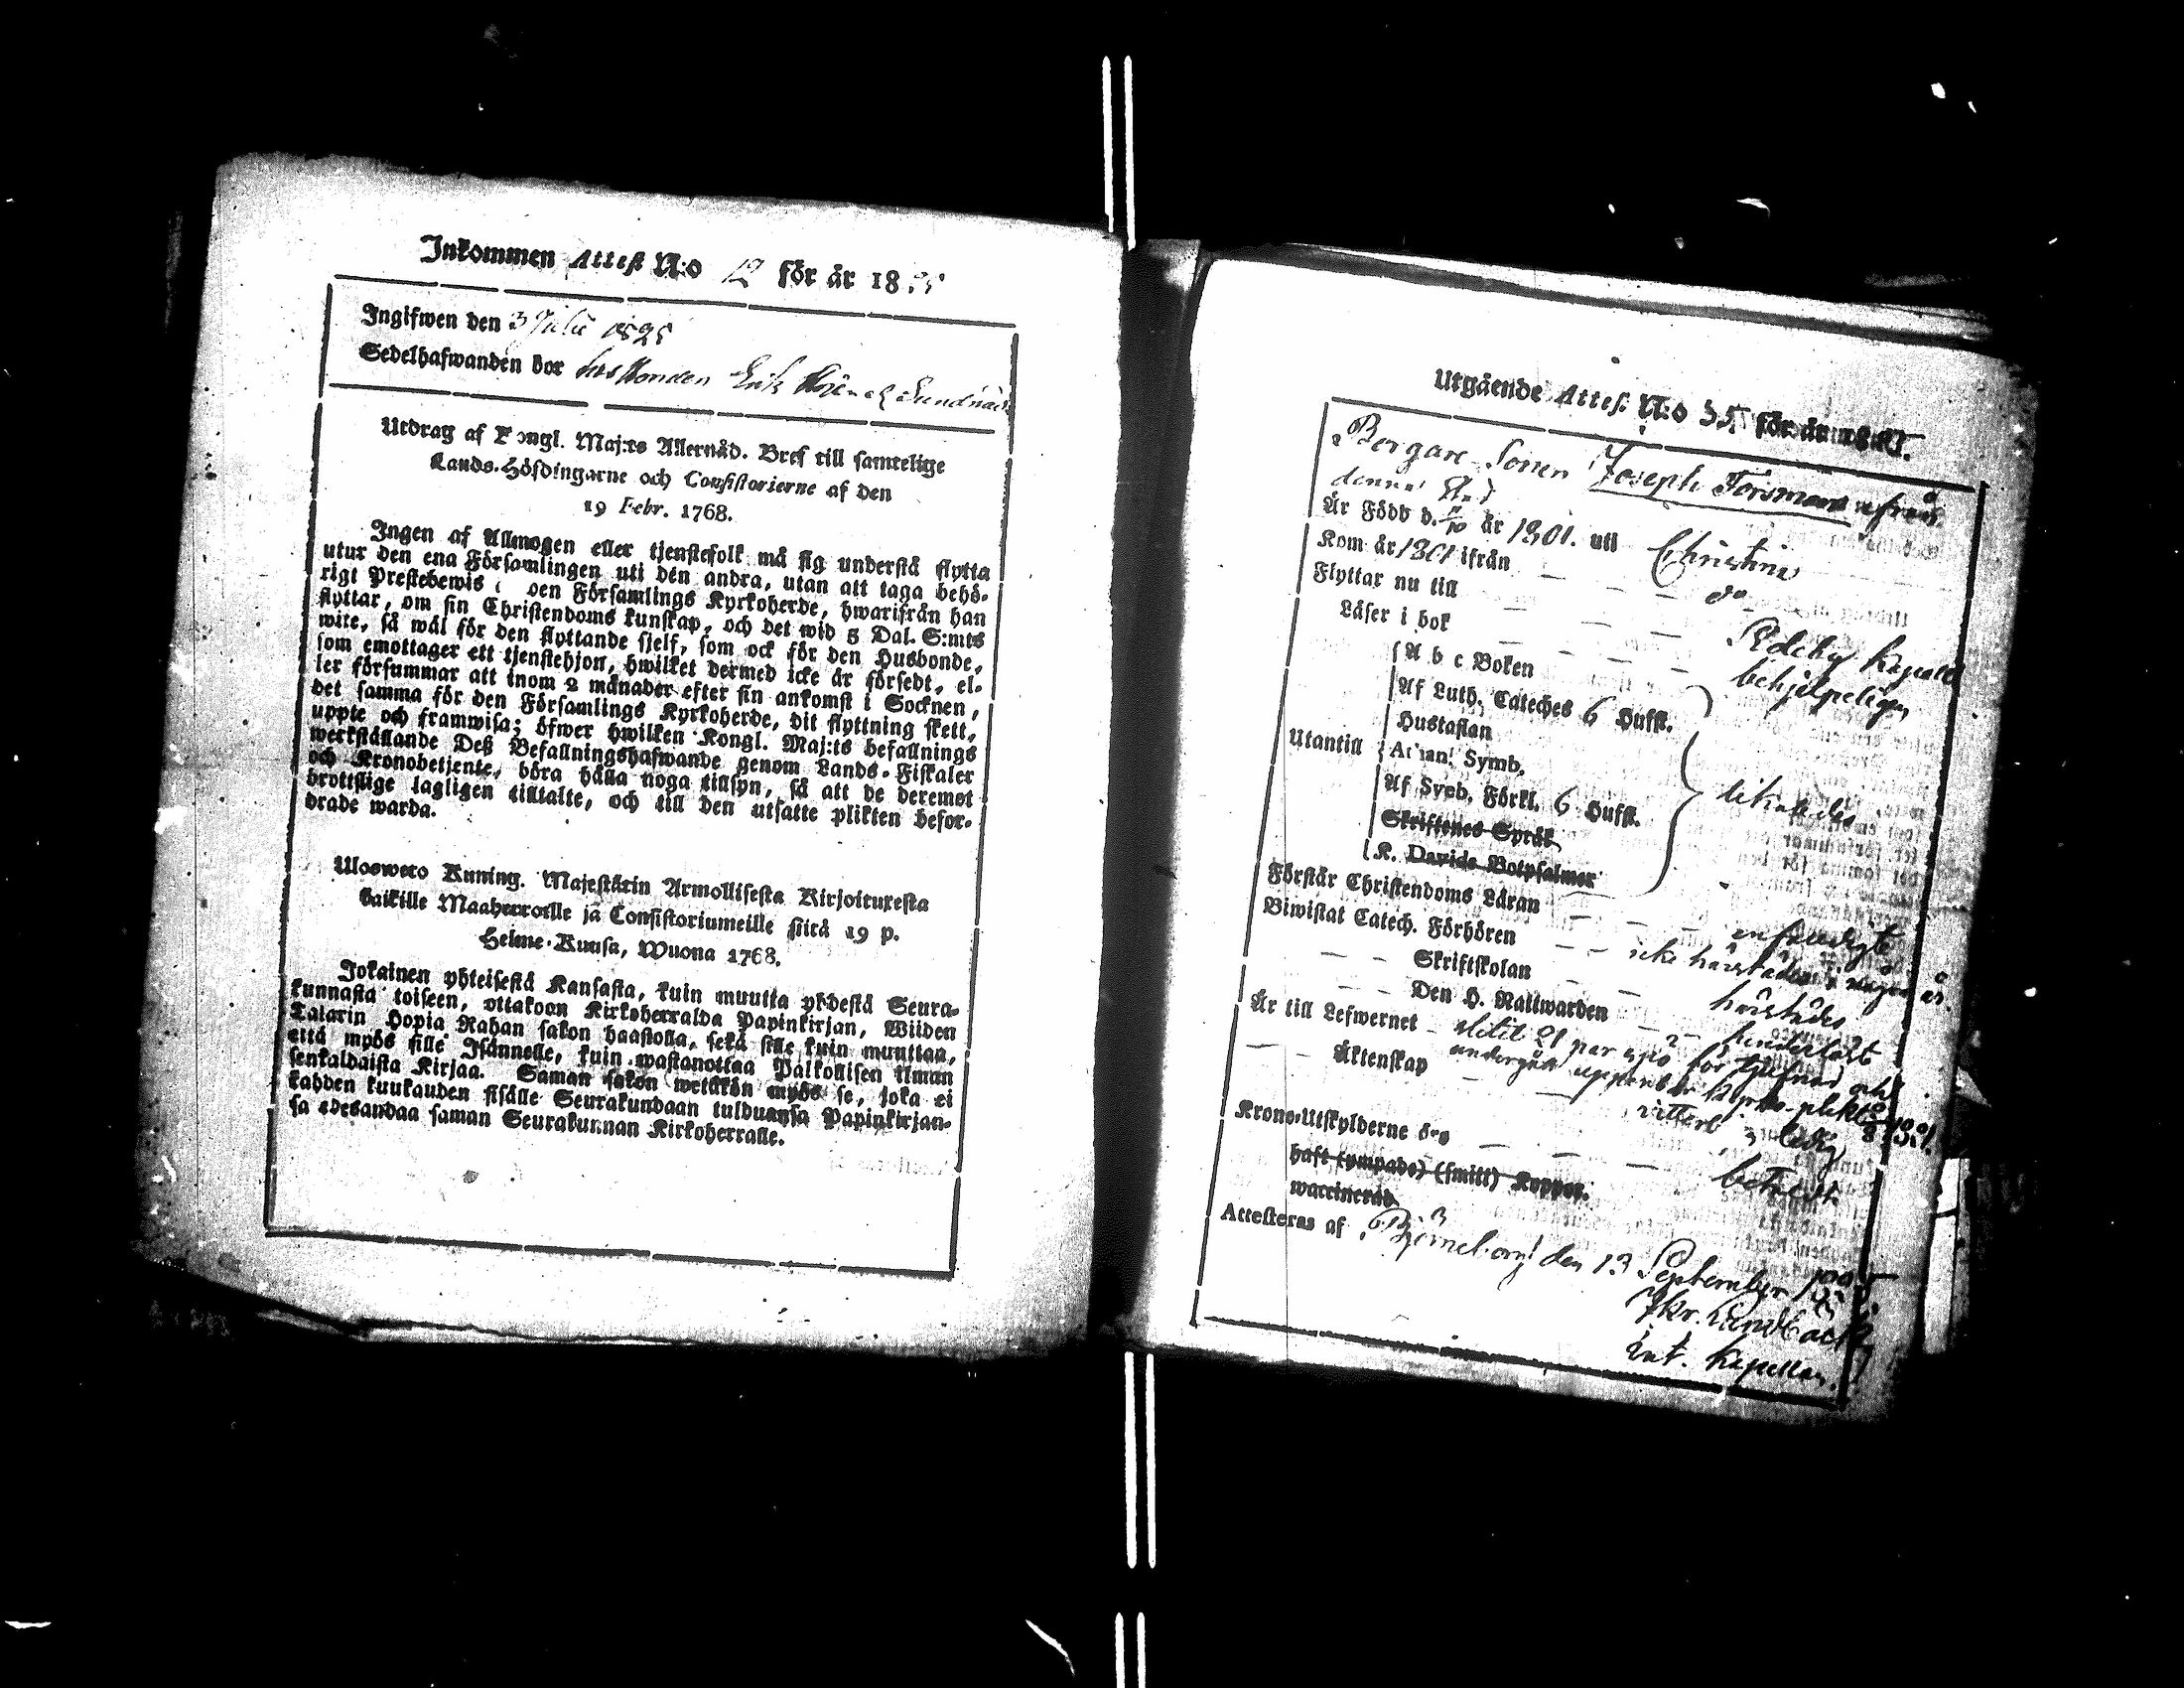 Inkommen Attest N:o 12 för år 18
Ingifwen den 3 Julii 1825
Sedelhafwanden bor hos Bonden Erik
Utdrag af Kongl. Maj:ts Allernåd. Bref till samtelige
Lands-Höfdingarne och Consistorierne af den
19 Febr. 1768.
Ingen af Allmogen eller tjenstefolk må sig understå flytta
utur den ena Församlingen uti den andra, utan att taga behö-
rigt Prestebewis i den Församlings Kyrkoherde, hwarifrån han
flyttar, om sin Christendoms kunskap, och det wid 5 Dal. S:mts
wite, så wäl för den flyttande sjelf, som ock för den Husbonde,
som emottager ett tjenstehjon, hwilket dermed icke är försedt, el-
ler försummar att inom 2 månader efter sin ankomst i Socknen,
det samma för den Församlings Kyrkoherde, dit flyttning skett,
uppte och framwisa; öfwer hwilken Kongl. Maj:ts befallnings
werkställande Deß Befallningshafwande genom Lands-Fiskaler
och Kronobetjente, böra hålla noga tillsyn, så att de deremot
brottslige lagligen tilltalte, och till den utsatte plikten befor-
drade warda.
Uloswето Kuning. Majestätin Armollisesta Kirjoituxesta
kaikille Maaherroille ja Consistoriumeille siitä 19 p.
Helme-Kuusa, Wuona 1768.
Jokainen yhteisestä Kansasta, kuin muutta yhdestä Seura-
kunnasta toiseen, ottakoon Kirkoherralda Papinkirjan, Wiiden
Talarin Hopia Rahan sakon haastolla, sekä sille kuin muuttaa,
että myös sille Isännelle, kuin wastanottaa Palkollisen ilman
senkaldaista Kirjaa. Saman sakon wetäkön myös se, joka ei
kahden kuukauden sisälle Seurakundaan tulduansa Papinkirjan-
sa edesandaa saman Seurakunnan Kirkoherralle.
Utgående Attest N:o 35 för år
Borgare Sonen Joseph Forsman ifrån
denna Stad
Är Född d. 11/10 år 1801. uti Christina
Kom år 1801 ifrån d:o
Flyttar nu till Edeby Kapell
Läser i bok behjelpeligen
Utantill
A b c Boken
Af Luth. Cateches 6 Hufst.
Hustaflan
Athan. Symb.
Af Sveb. Förkl. 6 Hufst.
likaledes
Skriftenes Språk
K. Davids Botpsalmer
Förstår Christendoms Läran enfaldigt
Biwistat Catech. Förhören icke härstädes i några år
Skriftskolan härstädes
Den H. Nattwarden hinderlöst
Är till Lefwernet slitit 21 par spö för tjufnad och
undergått uppenbar Kyrko-plikt
Äktenskap ledig
Krono-Utskylderne dro betalt
haft (ympade) (smitt) Koppor.
waccinerad
Attesteras af Björneborg den 13 September 1825
Kapellan.